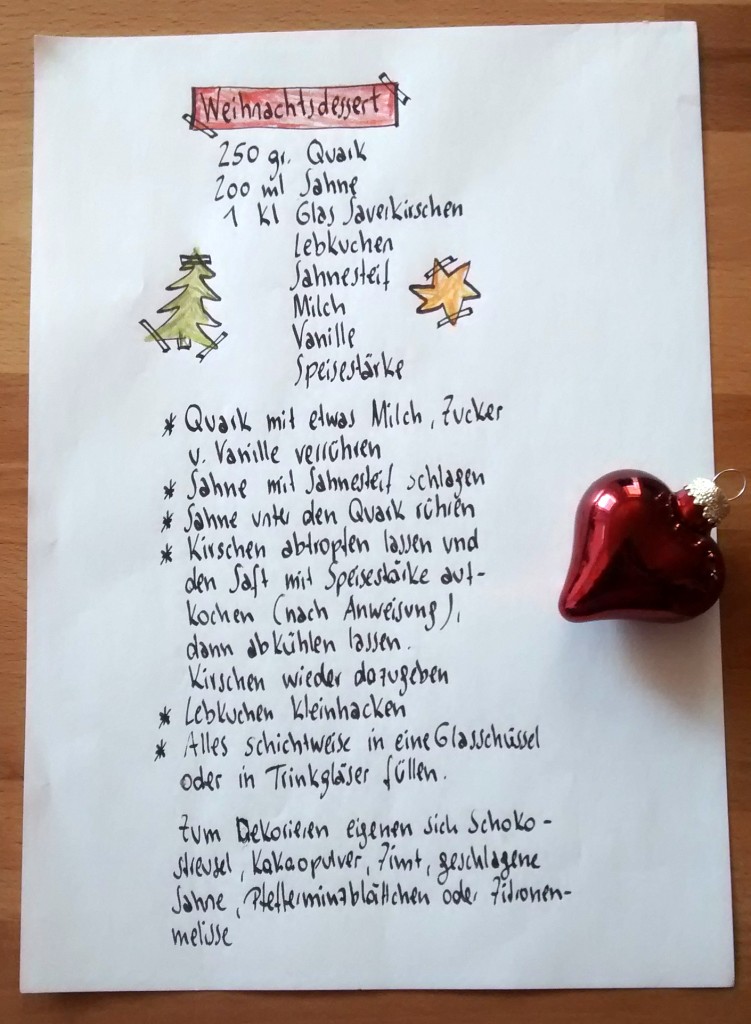 Weihnachtsdessert
250 gr. Quark
200 ml Sahne
1 kl Glas Sauerkirschen
Lebkuchen
Sahnesteif
Milch
Vanille
Speisestärke
* Quark mit etwas Milch, Zucker
u. Vanille verrühren
* Sahne mit Sahnesteif schlagen
* Sahne unter den Quark rühren
* Kirschen abtropfen lassen und
den Saft mit Speisestärke auf-
kochen (nach Anweisung),
dann abkühlen lassen.
Kirschen wieder dazugeben
* Lebkuchen kleinhacken
* Alles schichtweise in eine Glasschüssel
oder in Trinkgläser füllen.
Zum Dekorieren eigenen sich Schoko-
streusel, Kakaopulver, Zimt, geschlagene
Sahne, Pfefferminzblättchen oder Zitronen-
melisse